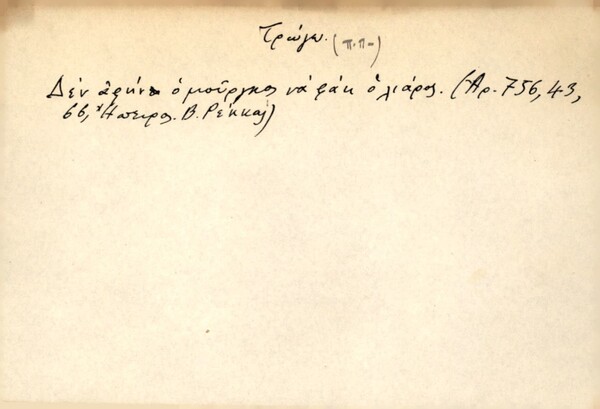 Τρώγω. (π.π.)
Δὲν ἀφήνει ὁ μοῦργκος νὰ φάῃ ὁ λιάρος. (Ἀρ. 756, 43,
66, Ἤπειρος. Β. Ρέκκας)